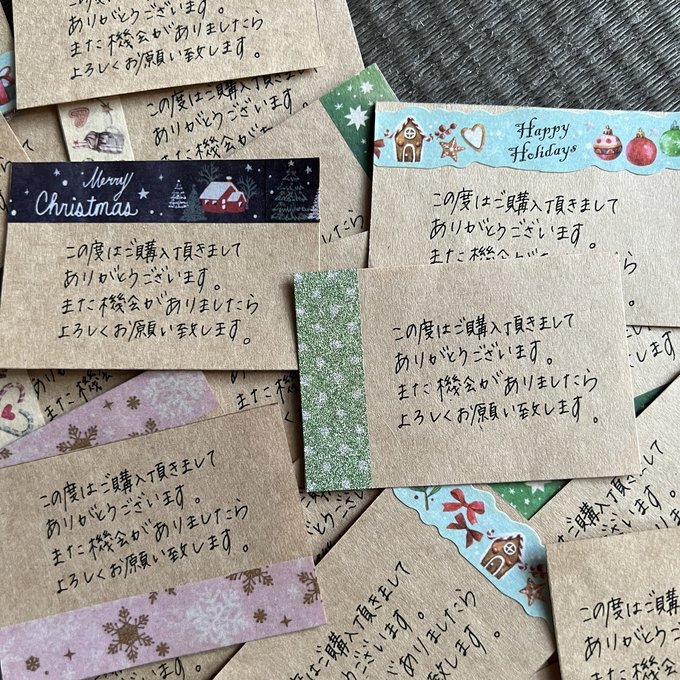 ありがとうございます。
また機会がありましたら
よろしくお願い致します。
この度はご購入頂きまして
ありがとうございます。
また機会が
Happy
Holidays
この度はご購入頂きまして
ありがとうございます。
また機会がありましたら
お願い致します。
Merry
Christmas
この度はご購入頂きまして
ありがとうございます。
また機会がありましたら
よろしくお願い致します。
この度はご購入頂きまして
ありがとうございます。
また機会がありましたら
よろしくお願い致します。
この度はご購入頂きまして
ありがとうございます。
また機会がありましたら
よろしくお願い致します。
この度はご購入頂きまして
ありがとうございます。
この度はご購
ありがとう
また機会
よろしく